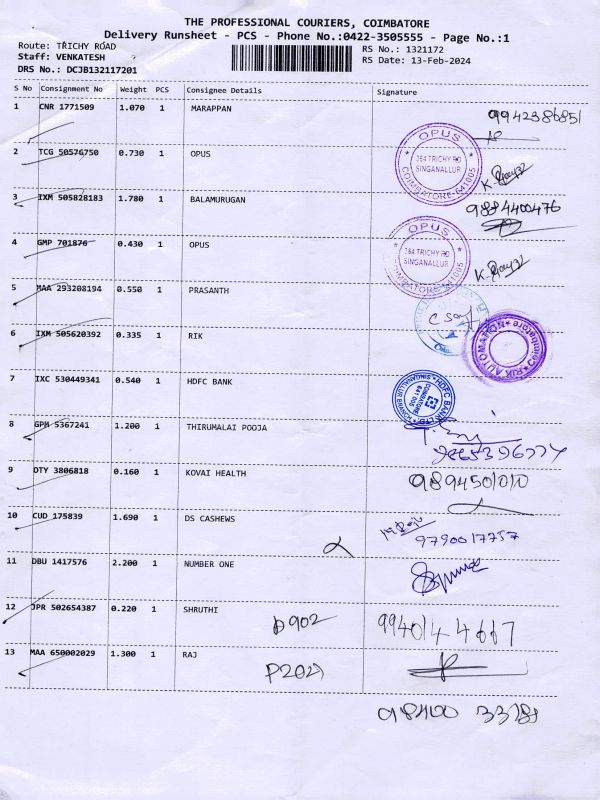 THE PROFESSIONAL COURIERS, COIMBATORE
Delivery Runsheet - PCS - Phone No.:0422-3505555 - Page No.:1
Route: TRICHY ROAD
RS No.: 1321172
Staff: VENKATESH
RS Date: 13-Feb-2024
DRS No.: DCJB132117201
S No Consignment No Weight PCS Consignee Details Signature
1 CNR 1771509 1.070 1 MARAPPAN
9942386851
2 TCG 50576750 0.730 1 OPUS
OPUS
384 TRICHY RD
SINGANALLUR
COIMBATORE-641005
3 IXM 505828183 1.780 1 BALAMURUGAN
9884400476
4 GMP 701876 0.430 1 OPUS
OPUS
384 TRICHY RD
SINGANALLUR
COIMBATORE-641005
5 MAA 293208194 0.550 1 PRASANTH
6 IXM 505620392 0.335 1 RIK
RIK AUTOMATION
Coimbatore
7 IXC 530449341 0.540 1 HDFC BANK
HDFC BANK LTD
SINGANALLUR BRANCH
COIMBATORE
641 005
8 GPM 5367241 1.200 1 THIRUMALAI POOJA
9865396774
9 DTY 3806818 0.160 1 KOVAI HEALTH
9894501010
10 CUD 175839 1.690 1 DS CASHEWS
9790017757
11 DBU 1417576 2.200 1 NUMBER ONE
12 JPR 502654387 0.220 1 SHRUTHI
D902
9940144667
13 MAA 650002029 1.300 1 RAJ
P2021
98400 33188